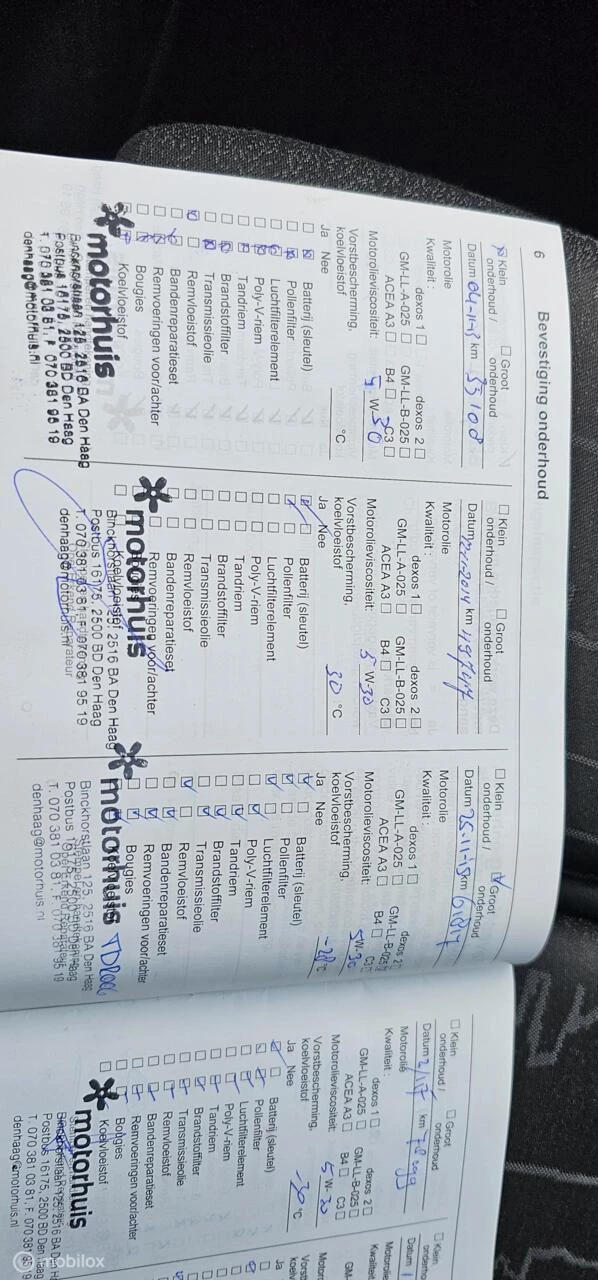 6
Bevestiging onderhoud
Klein
onderhoud /
Groot
onderhoud
Datum 04-11-13 km 33108
Motorolie
Kwaliteit :
dexos 1
dexos 2
GM-LL-A-025
GM-LL-B-025
ACEA A3
B4
C3
Motorolieviscositeit: 5 W-30
Vorstbescherming,
koelvloeistof
°C
Ja Nee
Batterij (sleutel)
Pollenfilter
Luchtfilterelement
Poly-V-riem
Tandriem
Brandstoffilter
Transmissieolie
Remvloeistof
Bandenreparatieset
Remvoeringen voor/achter
Bougies
Koelvloeistof
motorhuis
Binckhorstlaan 125, 2516 BA Den Haag
Postbus 16175, 2500 BD Den Haag
T. 070 381 03 81, F. 070 381 95 19
denhaag@motorhuis.nl
Klein
onderhoud /
Groot
onderhoud
km 49747
Motorolie
Kwaliteit :
dexos 1
dexos 2
GM-LL-A-025
GM-LL-B-025
ACEA A3
B4
C3
Motorolieviscositeit: 5 W-30
Vorstbescherming,
koelvloeistof
30 °C
Ja Nee
Batterij (sleutel)
Pollenfilter
Luchtfilterelement
Poly-V-riem
Tandriem
Brandstoffilter
Transmissieolie
Remvloeistof
Bandenreparatieset
Remvoeringen voor/achter
Koelvloeistof
motorhuis
Binckhorstlaan 125, 2516 BA Den Haag
Postbus 16175, 2500 BD Den Haag
T. 070 381 03 81, F. 070 381 95 19
denhaag@motorhuis.nl
Klein
onderhoud /
Groot
onderhoud
Datum 25-11-15 km 61817
Motorolie
Kwaliteit :
dexos 1
dexos 2
GM-LL-A-025
GM-LL-B-025
ACEA A3
B4
C3
Motorolieviscositeit: 5 W-30
Vorstbescherming,
koelvloeistof
°C
Ja Nee
Batterij (sleutel)
Pollenfilter
Luchtfilterelement
Poly-V-riem
Tandriem
Brandstoffilter
Transmissieolie
Remvloeistof
Bandenreparatieset
Remvoeringen voor/achter
Bougies
motorhuis
Binckhorstlaan 125, 2516 BA Den Haag
Postbus 16175, 2500 BD Den Haag
T. 070 381 03 81, F. 070 381 95 19
denhaag@motorhuis.nl
Klein
onderhoud /
Groot
onderhoud
Datum 2/17 km
Motorolie
Kwaliteit :
dexos 1
dexos 2
GM-LL-A-025
GM-LL-B-025
ACEA A3
B4
C3
Motorolieviscositeit: 5 W-30
Vorstbescherming,
koelvloeistof
-30 °C
Ja Nee
Batterij (sleutel)
Pollenfilter
Luchtfilterelement
Poly-V-riem
Tandriem
Brandstoffilter
Transmissieolie
Remvloeistof
Bandenreparatieset
Remvoeringen voor/achter
Bougies
Koelvloeistof
motorhuis
Binckhorstlaan 125, 2516 BA Den Haag
Postbus 16175, 2500 BD Den Haag
T. 070 381 03 81, F. 070 381 95 19
denhaag@motorhuis.nl
Klein
Datum
Motorolie
Kwaliteit
Ja
mobilox